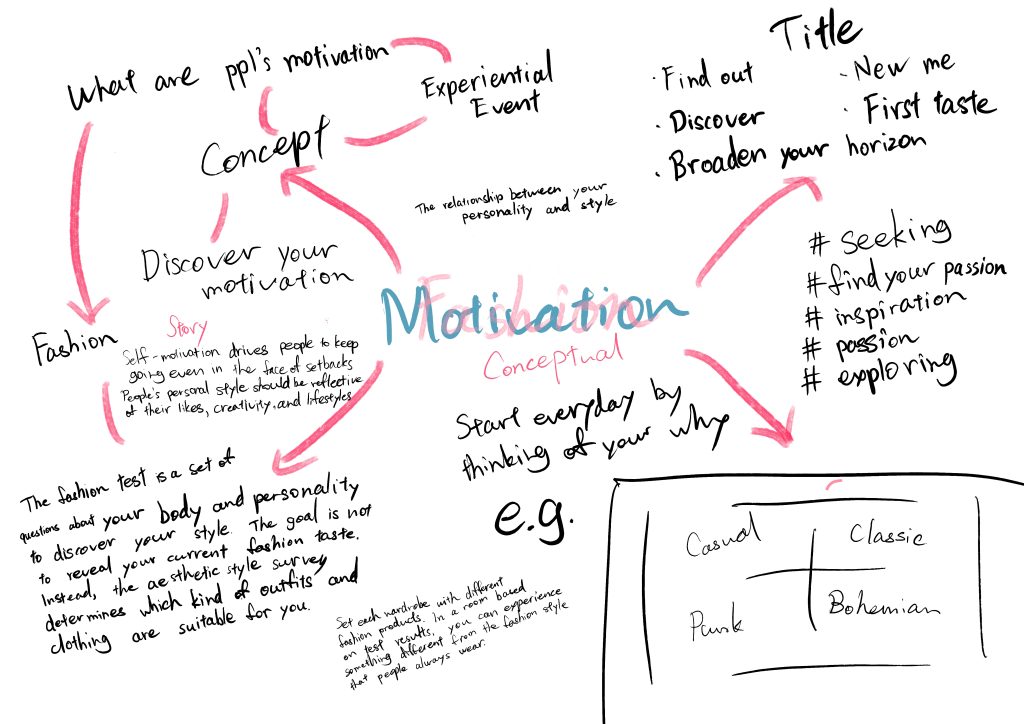 What are ppl's motivation
Experiential
Event
Concept
Discover your
motivation
Title
· Find out
· New me
· Discover
· First taste
· Broaden your horizon
The relationship between your
personality and style
# seeking
# find your passion
# inspiration
# passion
# exploring
Motivation
Fashion
Conceptual
Fashion
Story
Self-motivation drives people to keep
going even in the face of setbacks
People's personal style should be reflective
of their likes, creativity, and lifestyles
Start everyday by
thinking of your why
The fashion test is a set of
questions about your body and personality
to discover your style. The goal is not
to reveal your current fashion taste.
Instead, the aesthetic style survey
determines which kind of outfits and
clothing are suitable for you.
e.g.
Set each wardrobe with different
fashion products. In a room based
on test results, you can experience
something different from the fashion style
that people always wear.
Casual
Classic
Punk
Bohemian